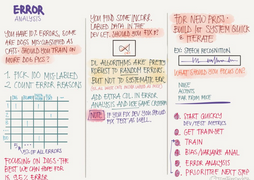 ERROR
ANALYSIS
YOU HAVE 10% ERRORS, SOME
ARE DOGS MISCLASSIFIED AS
CATS. SHOULD YOU TRAIN ON
MORE DOG PICS?
1. PICK 100 MISLABELED
2. COUNT ERROR REASONS
5% OF ALL ERRORS
FOCUSING ON DOGS THE
BEST WE CAN HOPE FOR
IS 9.5% ERROR
YOU FIND SOME INCORR.
LABELED DATA IN THE
DEV SET. SHOULD YOU FIX IT?
DL ALGORITHMS ARE PRETTY
ROBUST TO RANDOM ERRORS.
BUT NOT TO SYSTEMATIC ERR.
ADD EXTRA COL. IN ERROR
ANALYSIS AND USE SAME CRITERIA
NOTE IF YOU FIX DEV YOU SHOULD
FIX TEST AS WELL.
FOR NEW PROJ.
BUILD 1ST SYSTEM QUICK
& ITERATE
EX: SPEECH RECOGNITION
WHAT SHOULD YOU FOCUS ON?
NOISE
ACCENTS
FAR FROM MIC
1. START QUICKLY
DEV/TEST METRICS
2. GET TRAIN SET
3. TRAIN
4. BIAS/VARIANCE ANAL
5. ERROR ANALYSIS
6. PRIORITIZE NEXT STEP